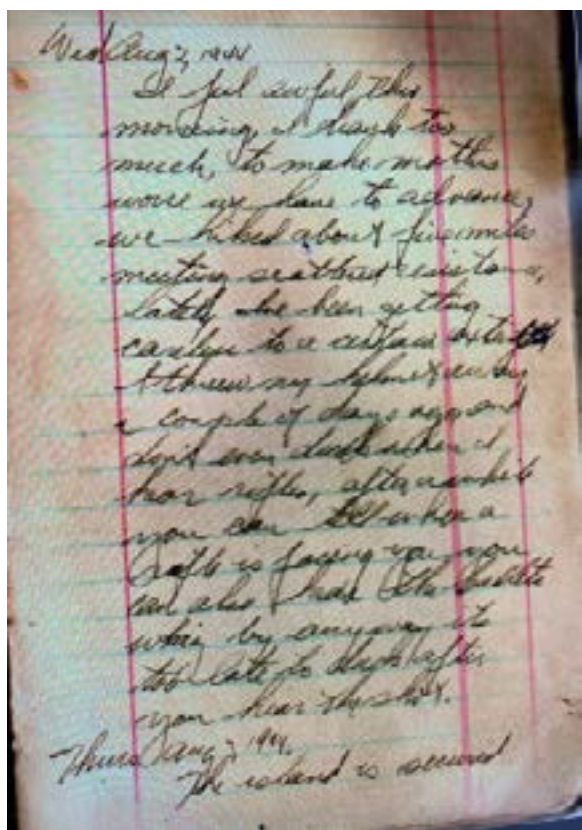 Wed Aug 2, 1944
I feel awful this
morning, I drank too
much, to make matters
worse we have to advance,
we hiked about five miles
meeting scattered resistance,
lately I've been getting
careless to a certain
I threw my helmet away
a couple of days ago and
don't even duck when I
hear rifles, after a while
you can tell when a
rifle is facing you you
can also hear the bullets
whiz by anyway it
too late to duck after
you hear the shot.
Thurs Aug 3, 1944.
The island is secured